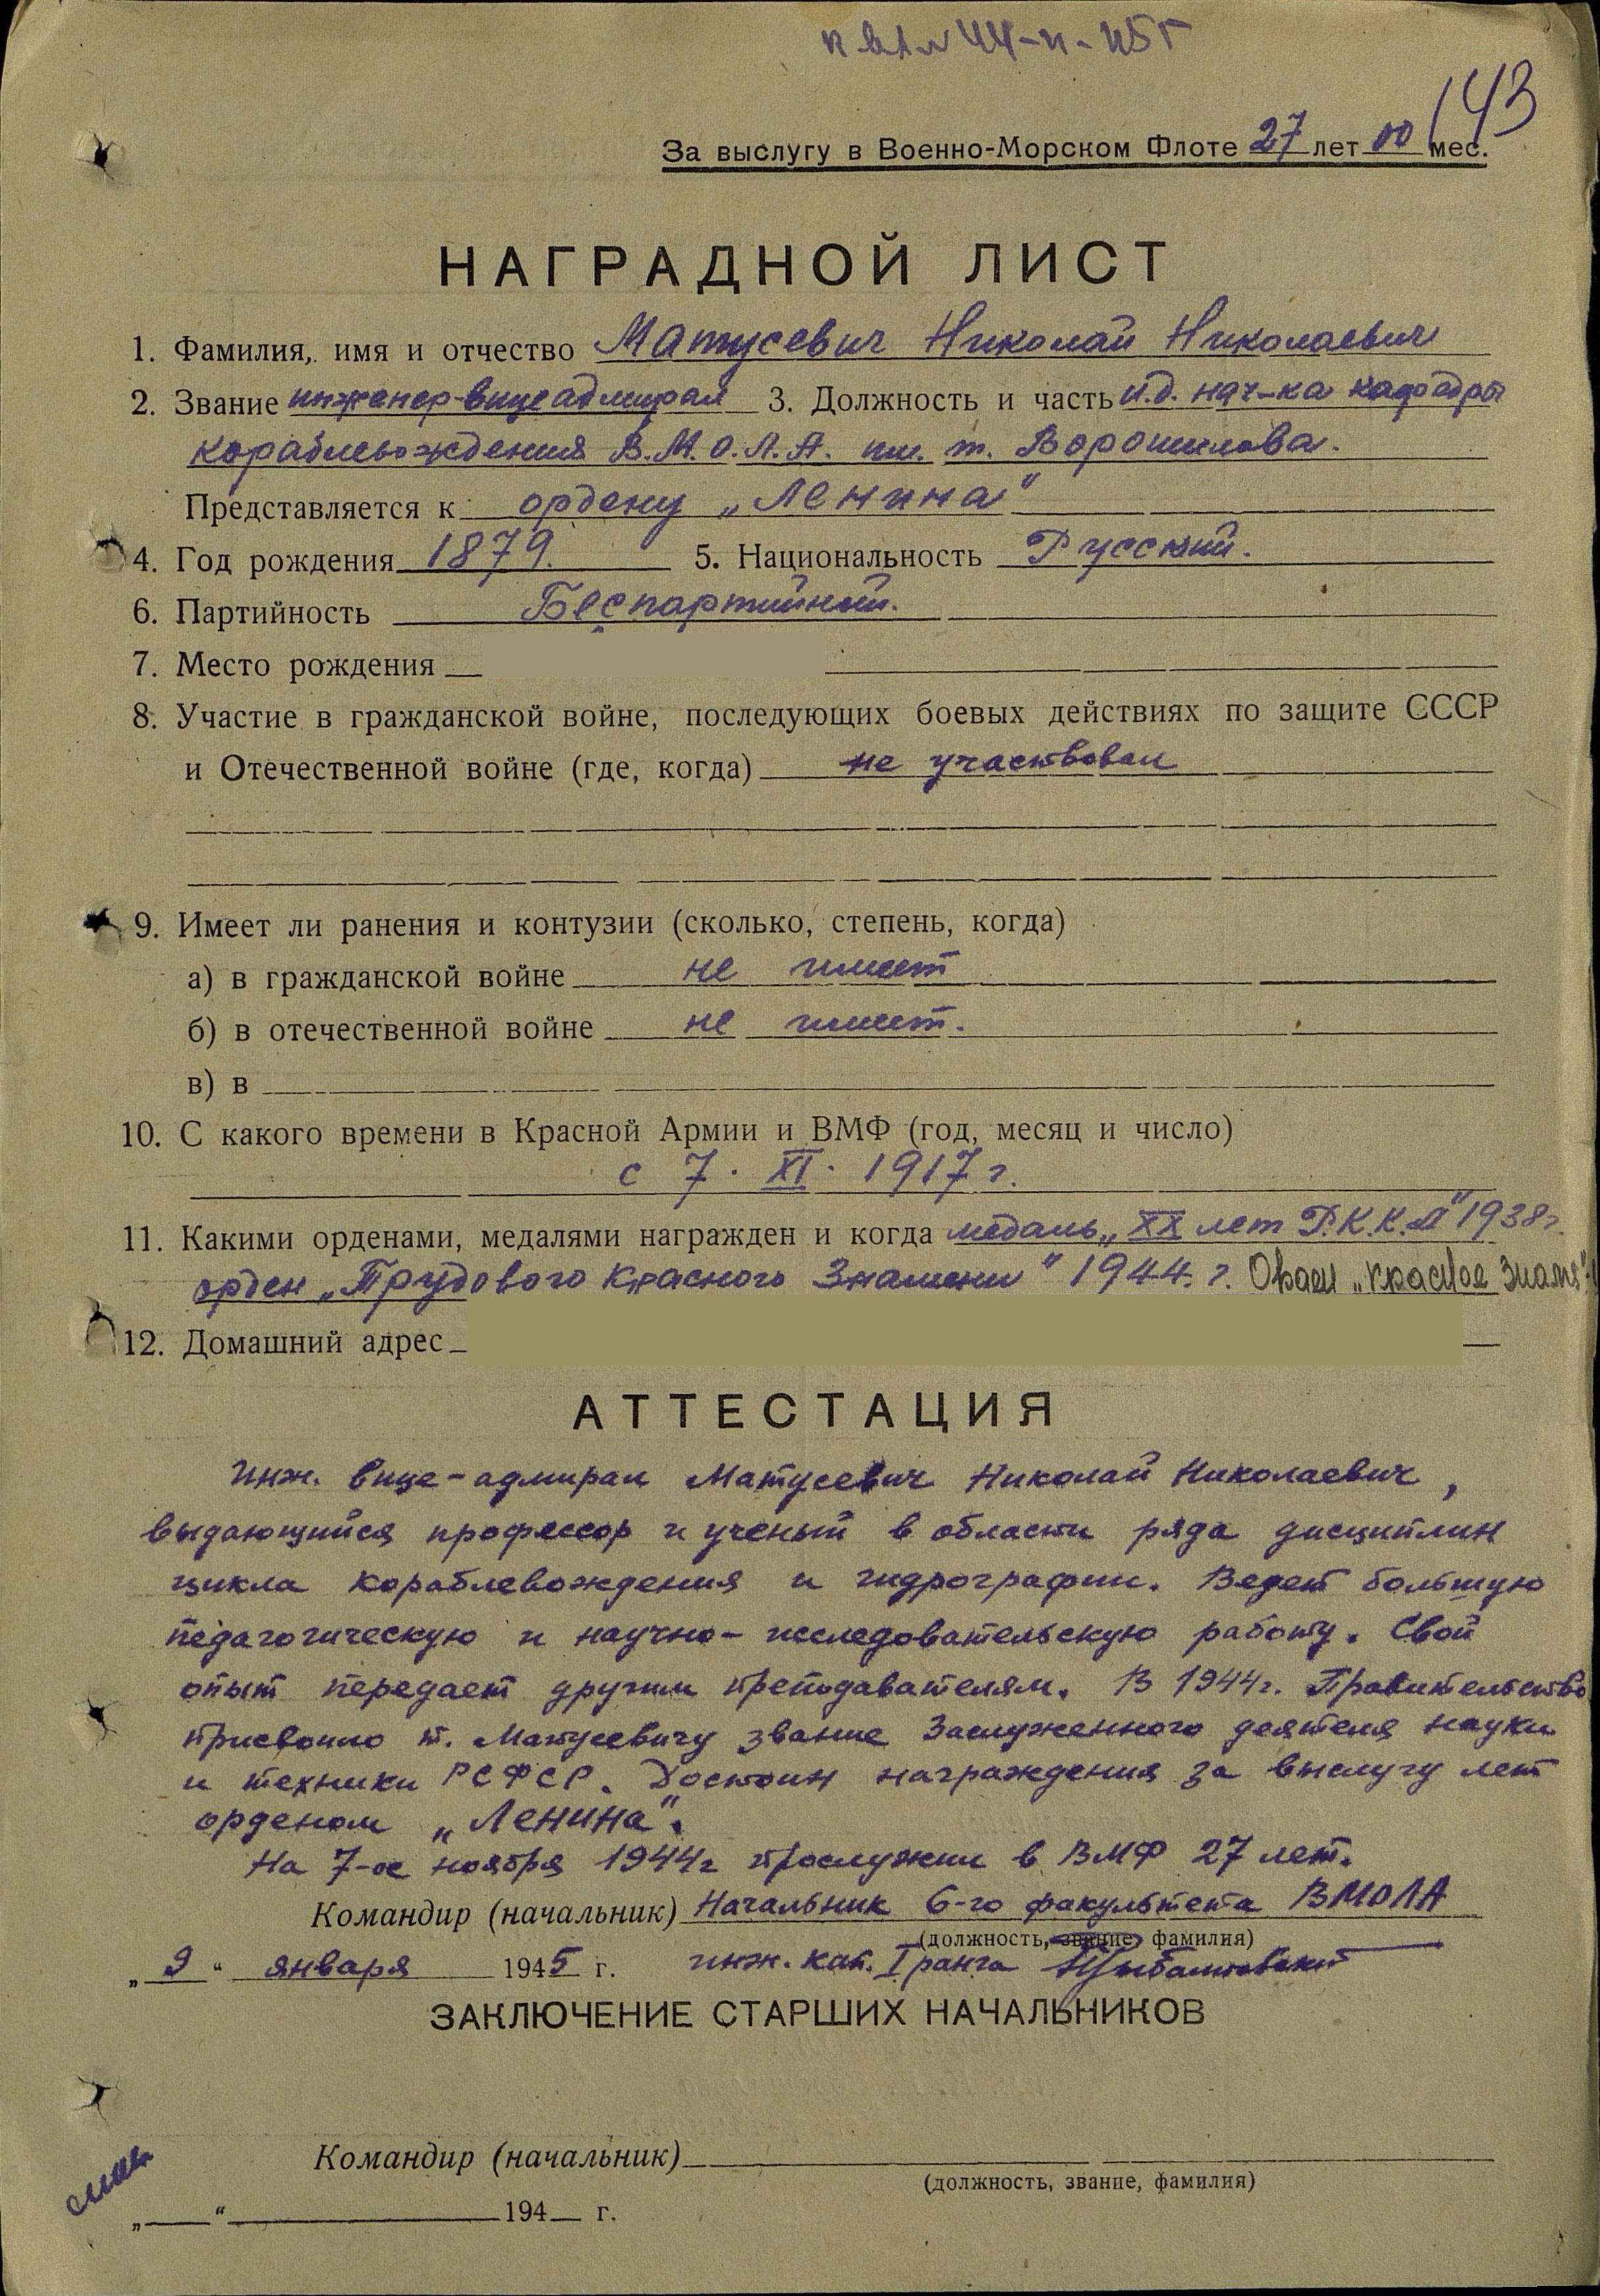 143
За выслугу в Военно-Морском Флоте 27 лет 00 мес.
НАГРАДНОЙ ЛИСТ
1. Фамилия, имя и отчество Матусевич Николай Николаевич
2. Звание инженер-вицеадмирал 3. Должность и часть и.д. нач-ка кафедры
кораблевождения В.М.О.Л.А. им. т. Ворошилова.
Представляется к ордену „Ленина"
4. Год рождения 1879. 5. Национальность Русский.
6. Партийность Беспартийный.
7. Место рождения
8. Участие в гражданской войне, последующих боевых действиях по защите СССР
и Отечественной войне (где, когда) не участвовал
9. Имеет ли ранения и контузии (сколько, степень, когда)
а) в гражданской войне не имеет
б) в отечественной войне не имеет.
в) в
10. С какого времени в Красной Армии и ВМФ (год, месяц и число)
с 7. XI. 1917 г.
11. Какими орденами, медалями награжден и когда медаль „XX лет Р.К.К.А" 1938 г.
орден „Трудового Красного Знамени" 1944. г. „Красное Знамя"
12. Домашний адрес
АТТЕСТАЦИЯ
Инж. вице-адмирал Матусевич Николай Николаевич,
выдающийся профессор и ученый в области ряда дисциплин
цикла кораблевождения и гидрографии. Ведет большую
педагогическую и научно-исследовательскую работу. Свой
опыт передает другим преподавателям. В 1944 г. Правительство
присвоило т. Матусевичу звание Заслуженного деятеля науки
и техники РСФСР. Достоин награждения за выслугу лет
орденом „Ленина".
На 7-ое ноября 1944 г прослужил в ВМФ 27 лет.
Командир (начальник) Начальник 6-го факультета ВМОЛА
(должность, звание, фамилия)
„9" января 1945 г. инж. кап. I ранга
ЗАКЛЮЧЕНИЕ СТАРШИХ НАЧАЛЬНИКОВ
Командир (начальник)
(должность, звание, фамилия)
„ " 194 г.